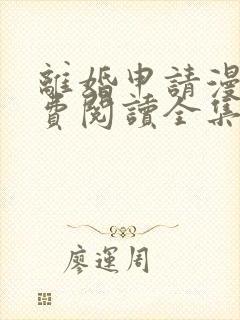 離婚申請漫
費閱讀全集
廖運周